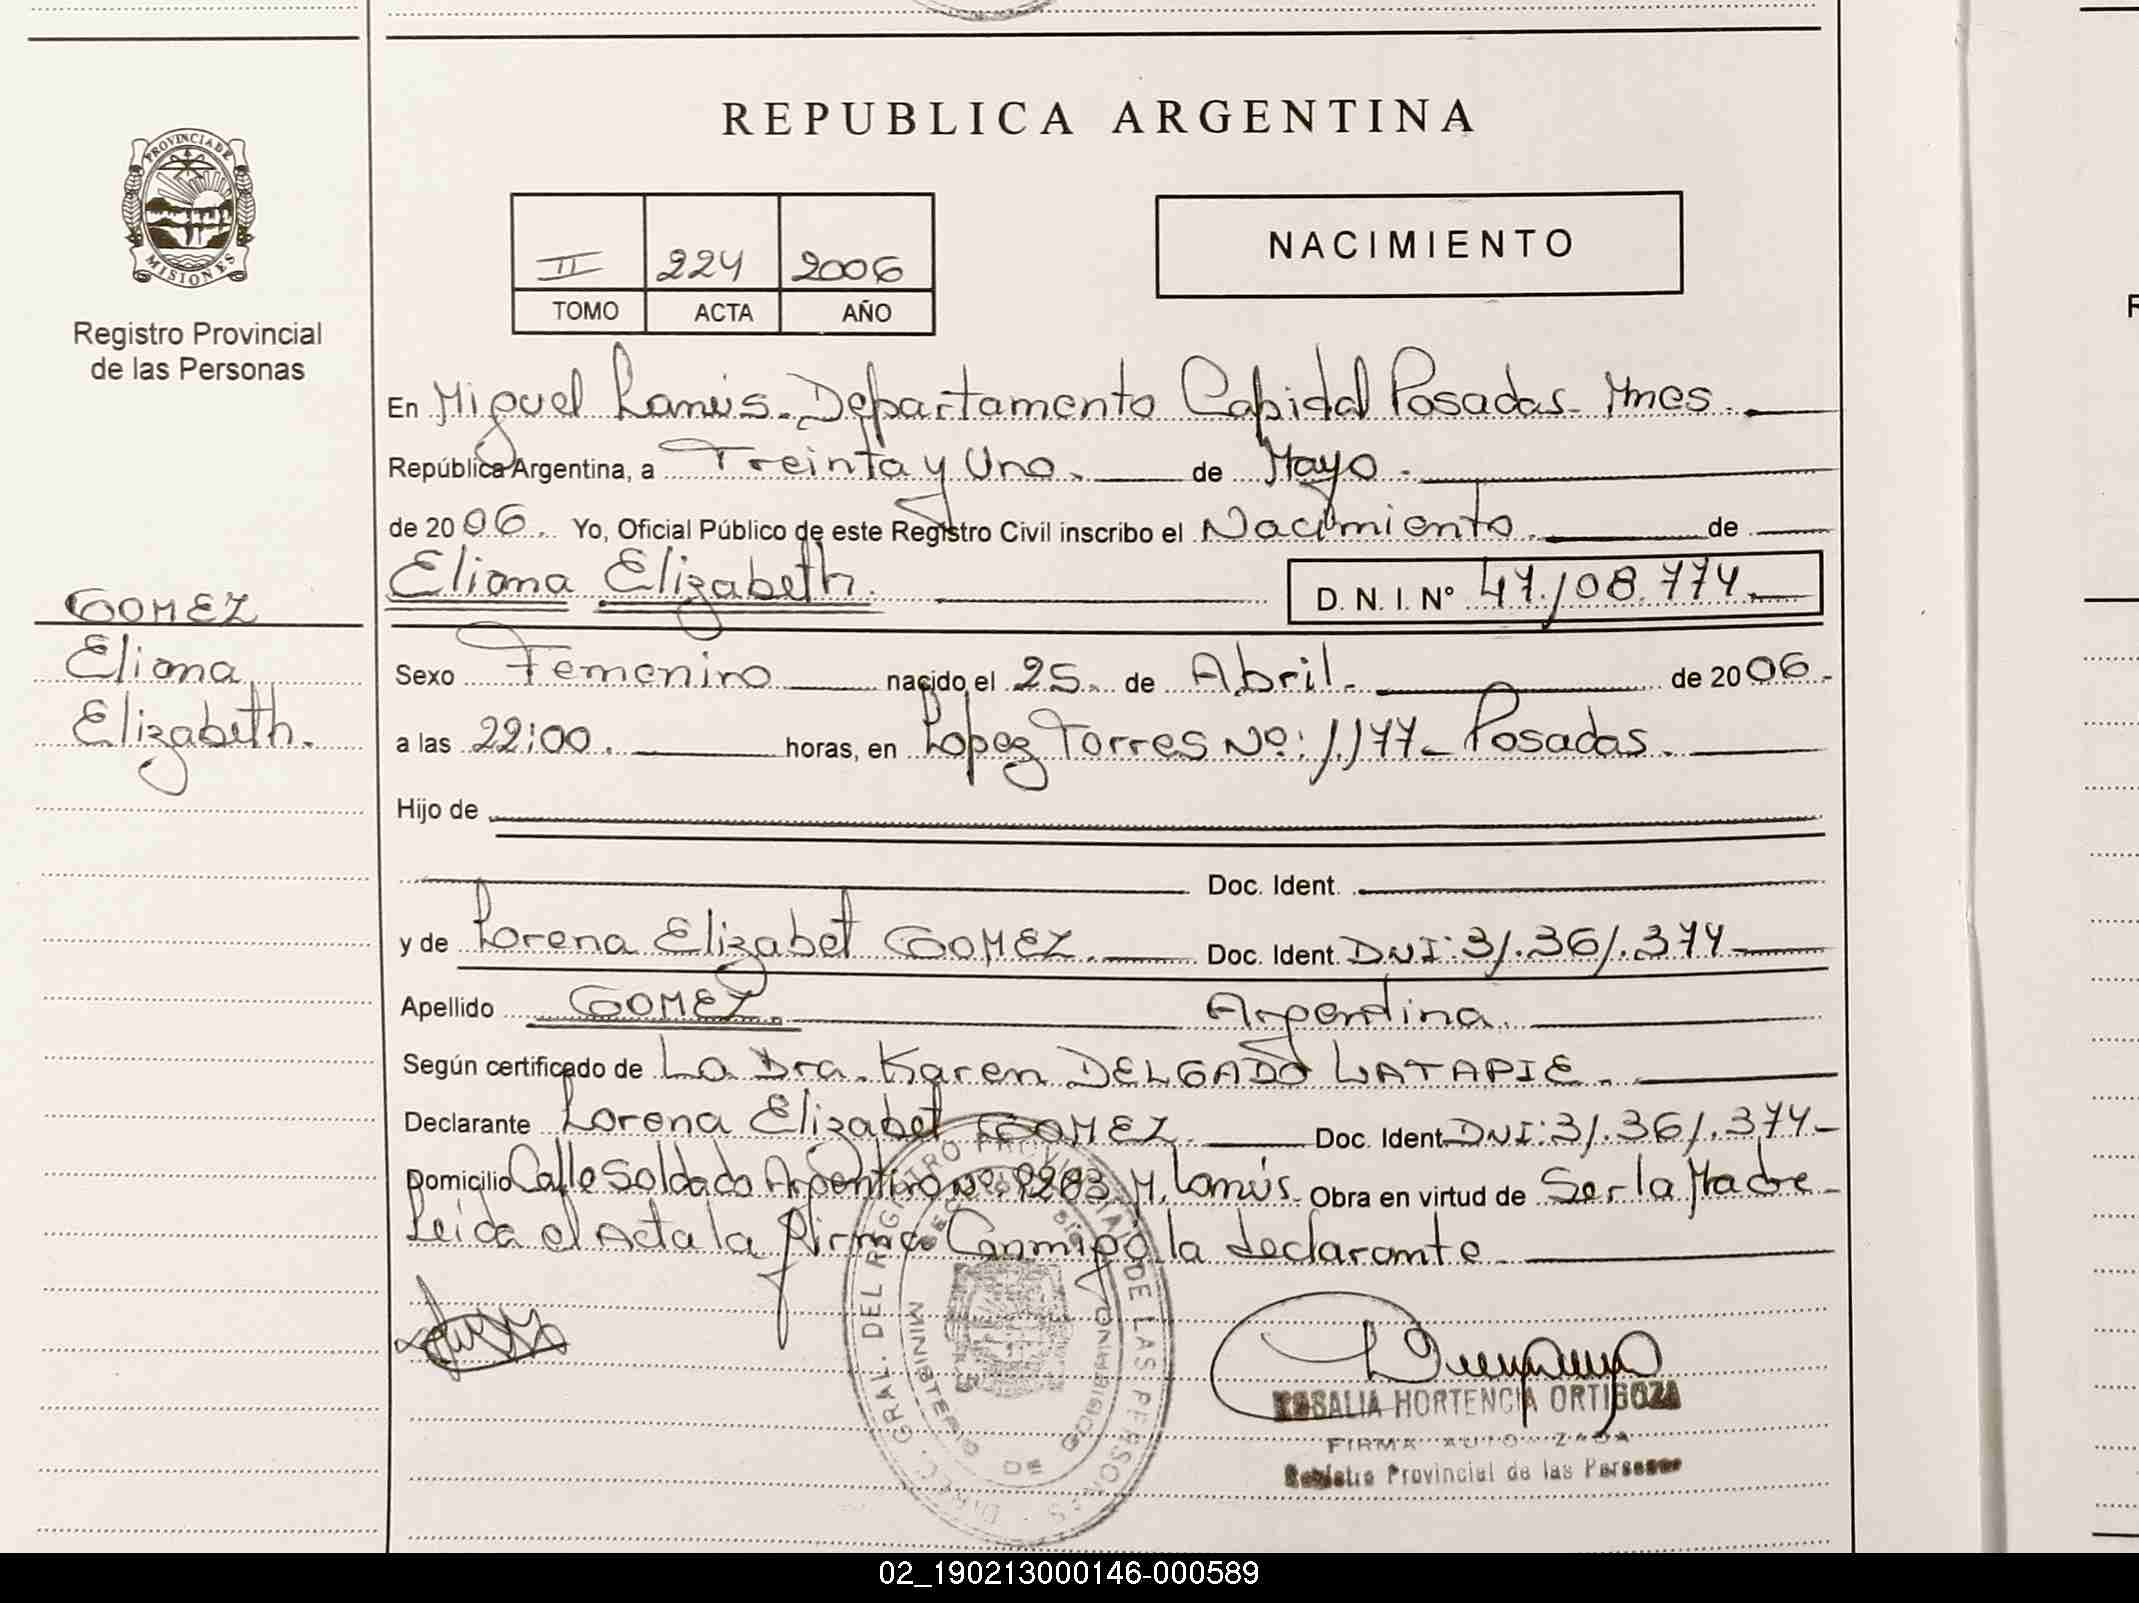 REPUBLICA ARGENTINA
PROVINCIA DE
MISIONES
Registro Provincial
de las Personas
II 224 2006
TOMO ACTA AÑO
NACIMIENTO
En Miguel Lanús. Departamento Capital Posadas - Mnes.
República Argentina, a Treinta y Uno. de Mayo.
de 2006. Yo, Oficial Público de este Registro Civil inscribo el Nacimiento de
Eliana Elizabeth. D. N. I. Nº 47.108.774
GOMEZ
Eliana
Elizabeth.
Sexo Femenino nacido el 25 de Abril. de 2006.
a las 22:00. horas, en Lopez Torres Nº: 1.177 - Posadas.
Hijo de
Doc. Ident.
y de Lorena Elizabet GOMEZ. Doc. Ident. DNI: 31.361.374
Apellido GOMEZ. Argentina.
Según certificado de La Dra. Karen DELGADO LATAPIE.
Declarante Lorena Elizabet GOMEZ. Doc. Ident. DNI: 31.361.374-
Domicilio Calle Soldado Argentino Nº. 9283. M. Lanús. Obra en virtud de Ser la Madre-
Leida el Acta la firma Conmigo la declarante
DIREC. GRAL. DEL REGISTRO PROVINCIAL DE LAS PERSONAS
MINISTERIO DE GOBIERNO
ROSALIA HORTENCIA ORTIGOZA
FIRMA AUTORIZADA
Registro Provincial de las Personas
02_190213000146-000589